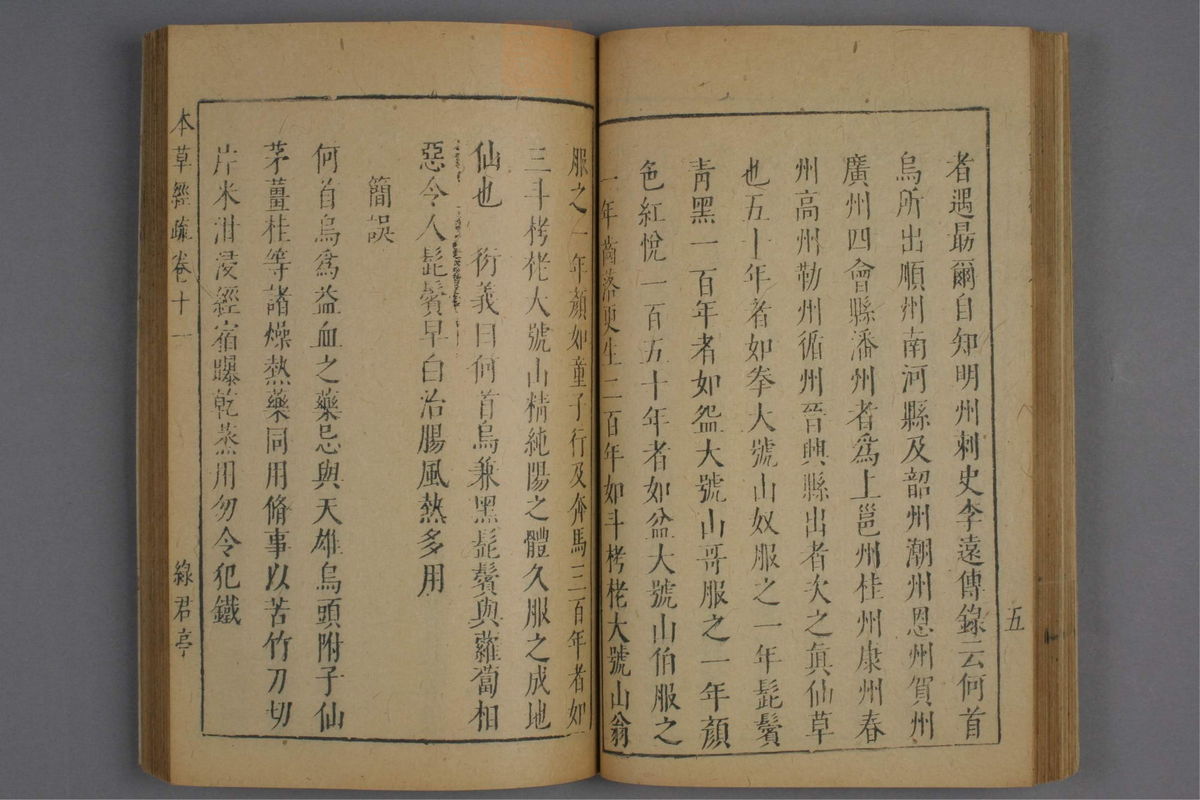 者遇最爾自知明州刺史李遠傳錄云何首
烏所出順州南河縣及韶州潮州恩州賀州
廣州四會縣潘州者爲上邕州桂州康州春
州高州勒州循州晉興縣出者次之眞仙草
也五十年者如拳大號山奴服之一年髭鬢
靑黑一百年者如盌大號山哥服之一年顏
色紅悅一百五十年者如盆大號山伯服之
一年齒落更生二百年如斗栲栳大號山翁
五
服之一年顏如童子行及奔馬三百年者如
三斗栲栳大號山精純陽之體久服之成地
仙也 衍義曰何首烏兼黑髭鬢與蘿蔔相
惡令人髭鬢早白治腸風熱多用
簡誤
何首烏爲益血之藥忌與天雄烏頭附子仙
茅薑桂等諸燥熱藥同用脩事以苦竹刀切
片米泔浸經宿曝乾蒸用勿令犯鐵
本草經疏卷十一
綠君亭